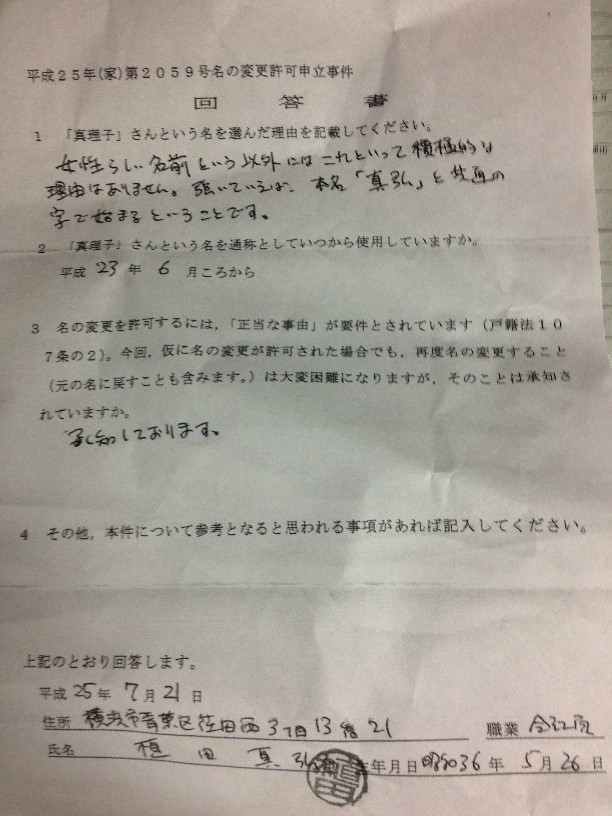 平成25年(家)第2059号名の変更許可申立事件
回答書
1 「真理子」さんという名を選んだ理由を記載してください。
女性らしい名前という以外にはこれといって積極的な
理由はありません。強いていえば、本名「真弘」と共通の
字で始まるということです。
2 「真理子」さんという名を通称としていつから使用していますか。
平成 23 年 6 月ころから
3 名の変更を許可するには,「正当な事由」が要件とされています(戸籍法10
7条の2)。今回,仮に名の変更が許可された場合でも,再度名の変更すること
(元の名に戻すことも含みます。)は大変困難になりますが,そのことは承知さ
れていますか。
承知しております。
4 その他,本件について参考となると思われる事項があれば記入してください。
上記のとおり回答します。
平成 25年 7月 21日
住所 横浜市青葉区荏田西3丁目13番21 職業 会社員
氏名 植田 真弘 生年月日 昭和36年 5月26日